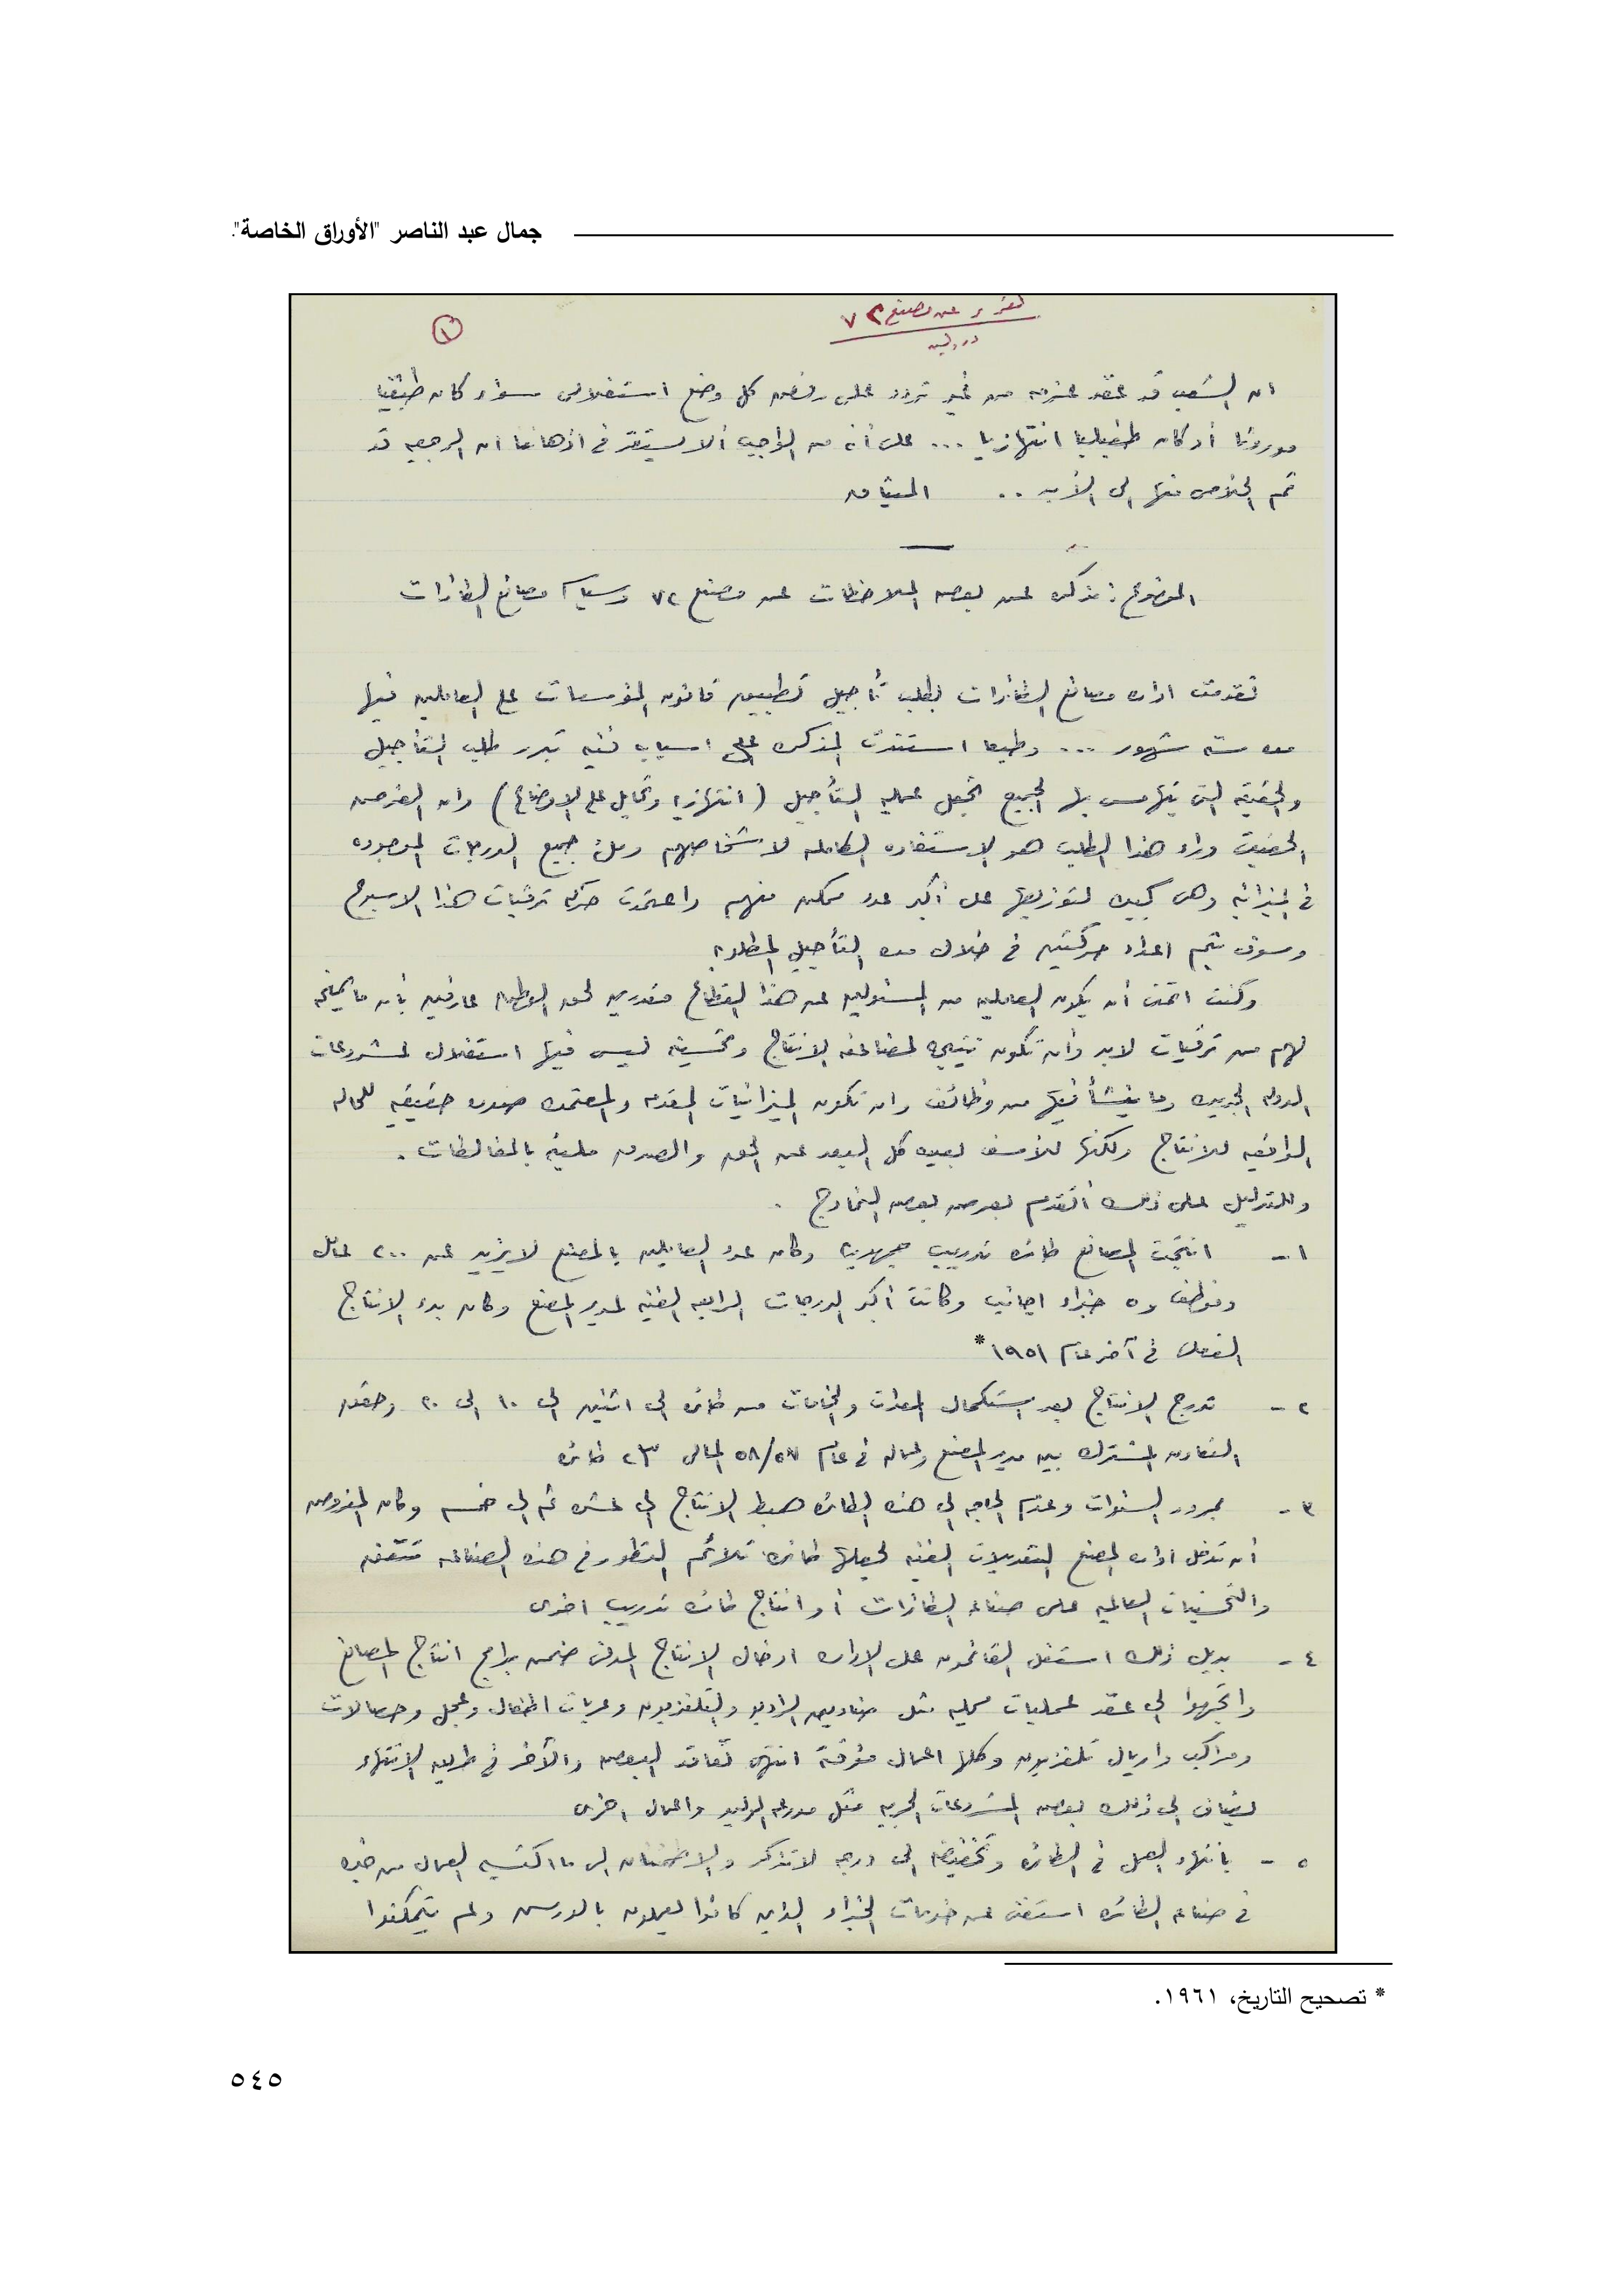 جمال عبد الناصر "الأوراق الخاصة".
تقرير عن مصنع ٧٢
١
ان الشعب قد عقد عزمه من غير تردد على رفض كل وضع استغلالى سواء كان طبقيا
موروثا أو كان طفيليا انتهازيا ... على أنه من الواجب ألا يستقر فى اذهاننا ان الرجعيه قد
تم الخلاص منها الى الأبد .. الميثاق
الموضوع : مذكره عن بعض الملاحظات عن مصنع ٧٢ وسياسة مصانع الطائرات
تقدمت اداره مصانع الطائرات بطلب تأجيل تطبيق قانون المؤسسات على العاملين فيها
مده سته شهور ... وطبعا استندت المذكره على اسباب فنيه تبرر طلب التأجيل
والحقيقه التى يتهامس بها الجميع تجعل عمليه التأجيل (انتهازيه وتحايل على الاوضاع) وان الغرض
الحقيقى وراء هذا الطلب هو الاستفاده الكامله لاشخاصهم وملئ جميع الدرجات الموجوده
فى الميزانيه وهى كبيره لتوزيعها على أكبر عدد ممكن منهم واعتمدت حركه ترقيات هذا الاسبوع
وسوف يتم اعداد حركتين فى خلال مده التأجيل المطلوبه
وكنت اتمنى أن يكون العاملين من المسئولين عن هذا القطاع مقدرين لحق الوطن عارفين بأن ما يمنح
لهم من ترقيات لابد وأن تكون نتيجه لمضاعفه الانتاج وتحسينه ليس فيها استغلال لمشروعات
الدوله الجديده وما ينشأ فيها من وظائف وان تكون الميزانيات المقدمه والمعتمده صوره حقيقيه للحاله
الواقعيه للانتاج ولكنها للأسف بعيده كل البعد عن الحق والصدق مليئه بالمغالطات .
وللتدليل على ذلك أتقدم بعرض بعض النماذج .
١ - انتجت المصانع طائره تدريب جمهوريه وكان عدد العاملين بالمصنع لا يزيد عن ٢٠٠ عامل
وموظف و٥ خبراء اجانب وكانت أكبر الدرجات الرابعه الفنيه لمدير المصنع وكان بدء الانتاج
الفعلى فى آخر عام ١٩٥١ *
٢ - تدرج الانتاج بعد استكمال المعدات والخامات من طائره الى اثنين الى ١٠ الى ٢٠ وحقق
التعاون المشترك بين مدير المصنع وعماله فى عام ٥٨/٥٧ المالى ٢٣ طائره
٣ - بمرور السنوات وعدم الحاجه الى هذه الطائره هبط الانتاج الى عشره ثم الى خمسه وكان المفروض
أن تدخل اداره المصنع التعديلات الفنيه لجعلها طائره تلائم التطور فى هذه الصناعه تتفق
والتحسينات العالميه على صناعه الطائرات أو انتاج طائره تدريب اخرى
٤ - بديل ذلك استغل القائمون على الاداره ادخال الانتاج المدنى ضمن برامج انتاج المصانع
واتجهوا الى عقد عمليات محليه مثل صناديق الراديو والتلفزيون وعربات اطفال وعجل وحصالات
ومراكب واريال تلفزيون وكلها اعمال مؤقتة انتهى تعاقد البعض والآخر فى طريق الانتهاء
يضاف الى ذلك بعض المشروعات الحربيه مثل مدرعه الوليد واعمال اخرى
٥ - بانتهاء العمل فى الطائره وتخفيضه الى درجه لا تذكر والاطمئنان الى ما اكتسبه العمال من خبره
فى صناعه الطائره استغنى عن خدمات الخبراء الذين كانوا يعملون بالورش ولم يتمكنوا
* تصحيح التاريخ، ١٩٦١.
٥٤٥